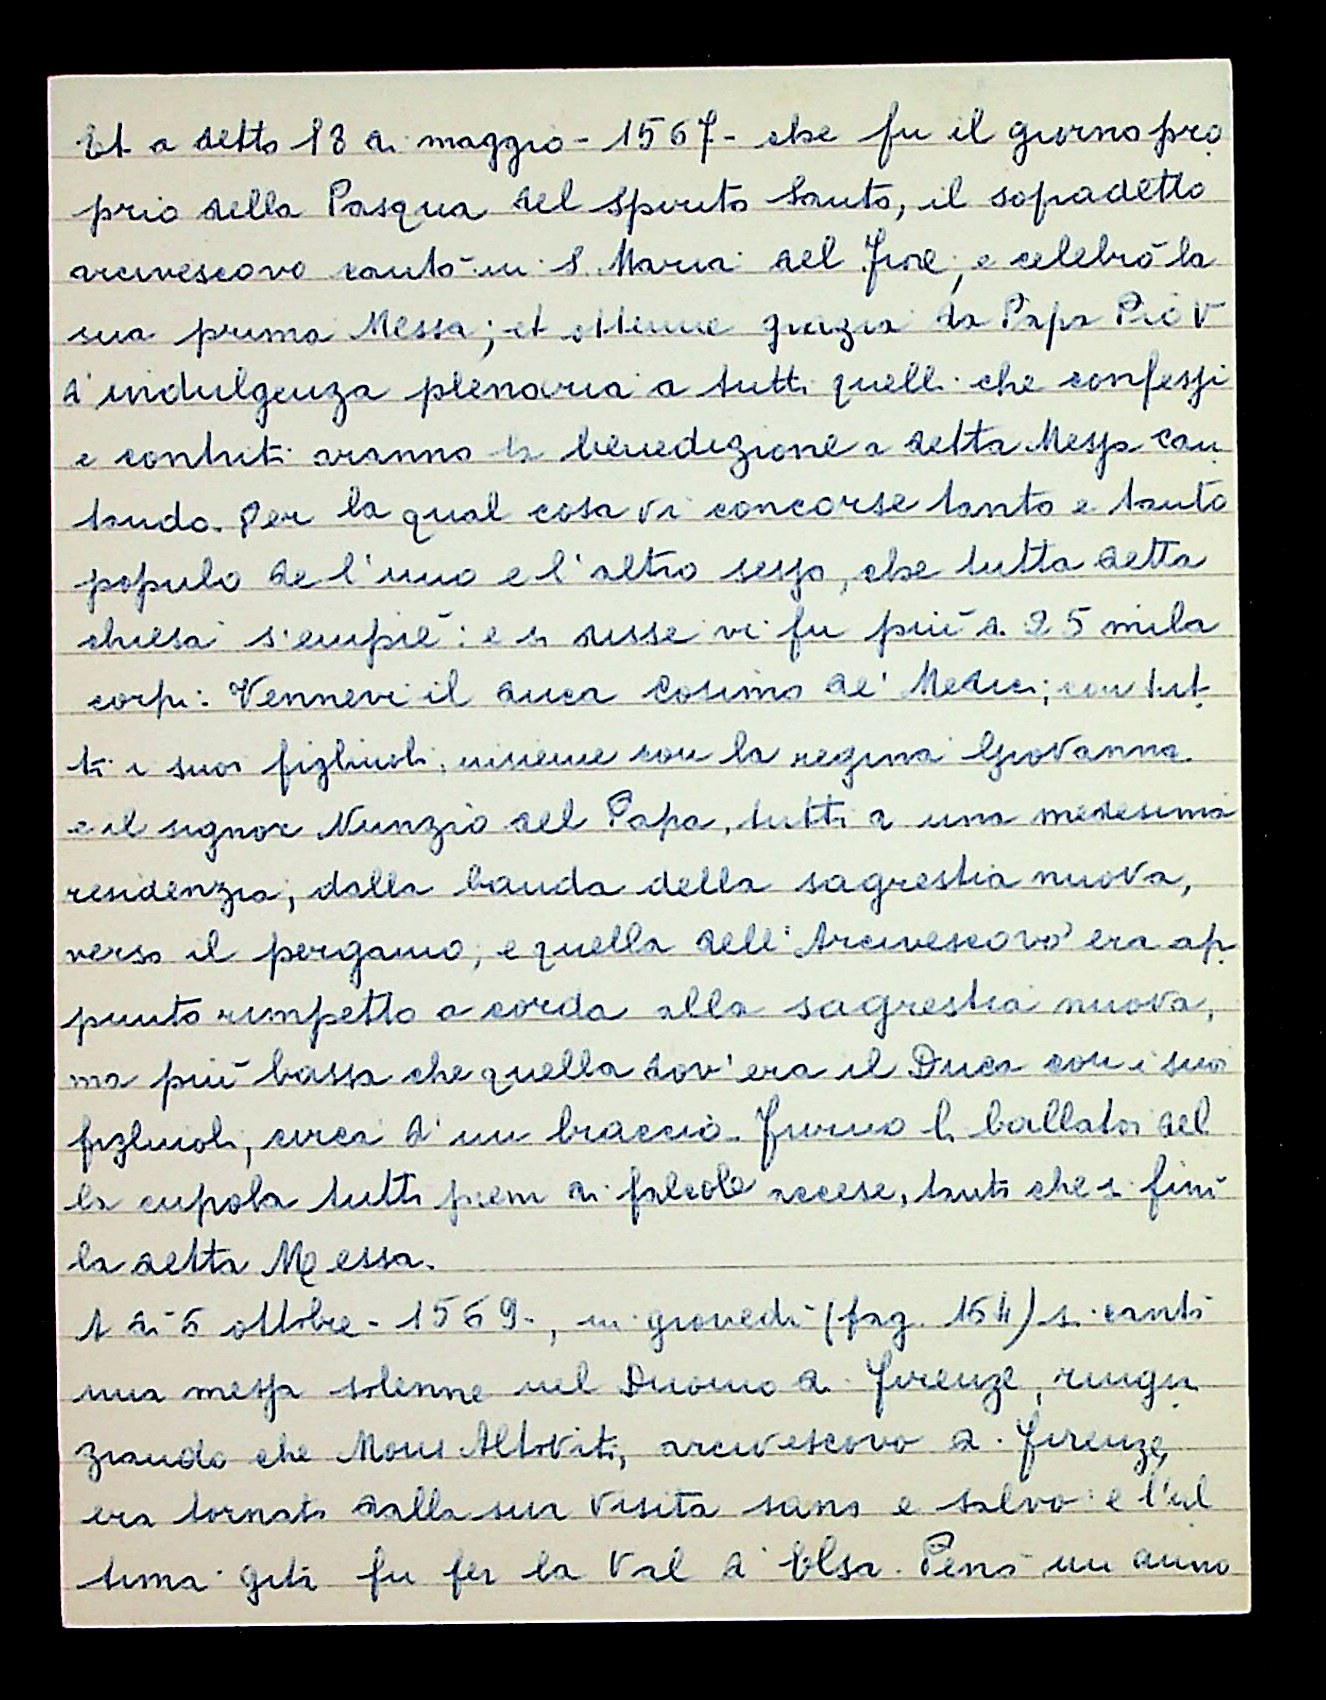 Et a detto 18 di maggio - 1567 - che fu il giorno pro
prio della Pasqua del Spirito Santo, il sopradetto
arcivescovo cantò in S. Maria del Fiore, e celebrò la
sua prima Messa; et ottenne grazia da Papa Pio V
d'indulgenza plenaria a tutti quelli che confessi
e contriti aranno la benedizione a detta Messa can
tando. Per la qual cosa vi concorse tanto e tanto
populo de l'uno e l'altro sesso, che tutta detta
chiesa s'empiè: e si disse vi fu più di 25 mila
corpi: Vennevi il duca Cosimo de' Medici; con tut
ti i suoi figliuoli, insieme con la regina Giovanna
e il signor Nunzio del Papa, tutti a una medesima
residenzia, dalla banda della sagrestia nuova,
verso il pergamo; e quella dell'Arcivescovo era ap
punto rimpetto a corda alla sagrestia nuova,
ma più bassa che quella dov'era il Duca con i suoi
figliuoli, circa d'un braccio. Furno li ballatoi del
la cupola tutti pieni di falcole accese, tanto che si finì
la detta Messa.
A dì 6 ottobre - 1569 -, in giovedì (pag. 164) si cantò
una messa solenne nel Duomo di Firenze, ringra
ziando che Mons Altoviti, arcivescovo di Firenze,
era tornato dalla sua visita sano e salvo e l'ul
tima gita fu per la Val d'Elsa. Penò un anno